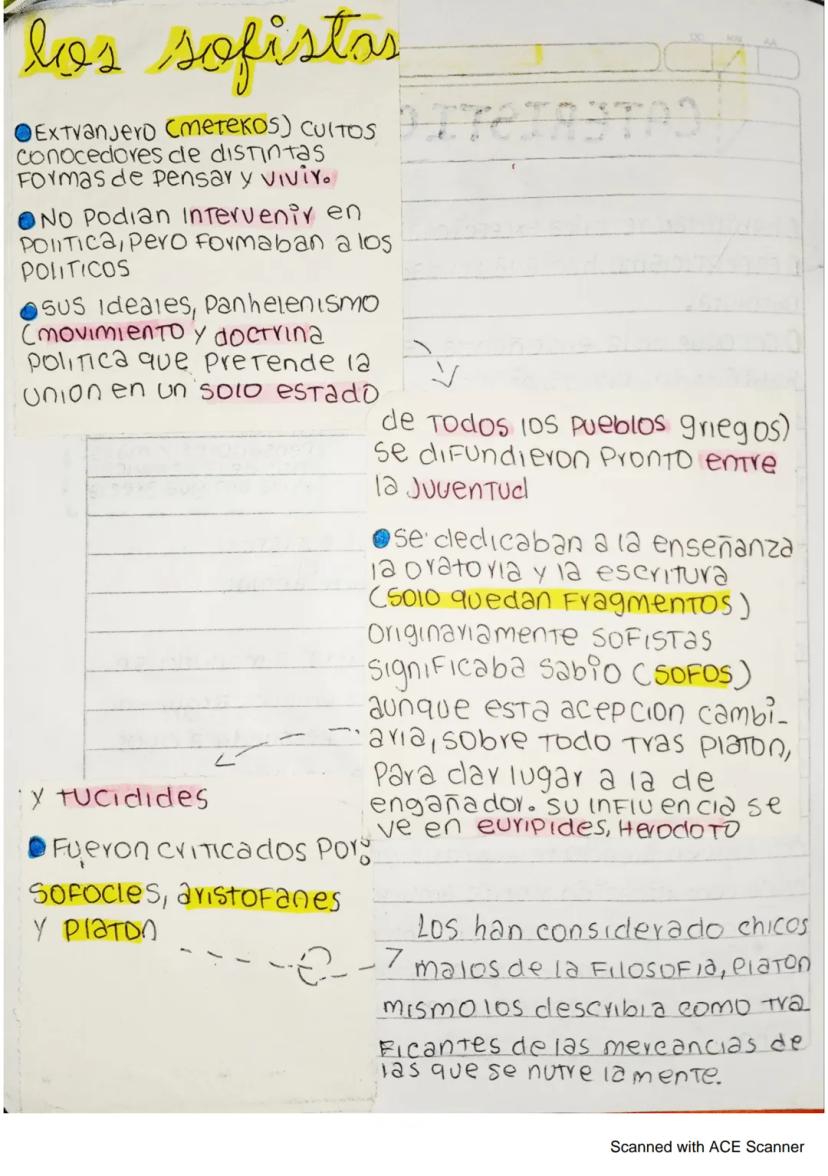 los sofistas
Extranjero (metekos) cultos
conocedores de distintas
formas de pensar y vivir.
No podian intervenir en
politica, pero formaban a los
politicos
sus ideales, panhelenismo
(movimiento y doctrina
politica que pretende la
union en un solo estado
de todos los pueblos griegos)
se difundieron pronto entre
la juventud
se dedicaban a la enseñanza
la oratoria y la escritura
(solo quedan fragmentos)
originariamente sofistas
significaba sabio (sofos)
aunque esta acepcion cambi-
aria, sobre todo tras platon,
para dar lugar a la de
engañador. su influencia se
ve en euripides, Herodoto
y tucidides
Fueron criticados por:
sofocles, aristofanes
y platon
Los han considerado chicos
malos de la filosofia, platon
mismo los describia como tra
ficantes de las mercancias de
las que se nutre la mente.
Scanned with ACE Scanner